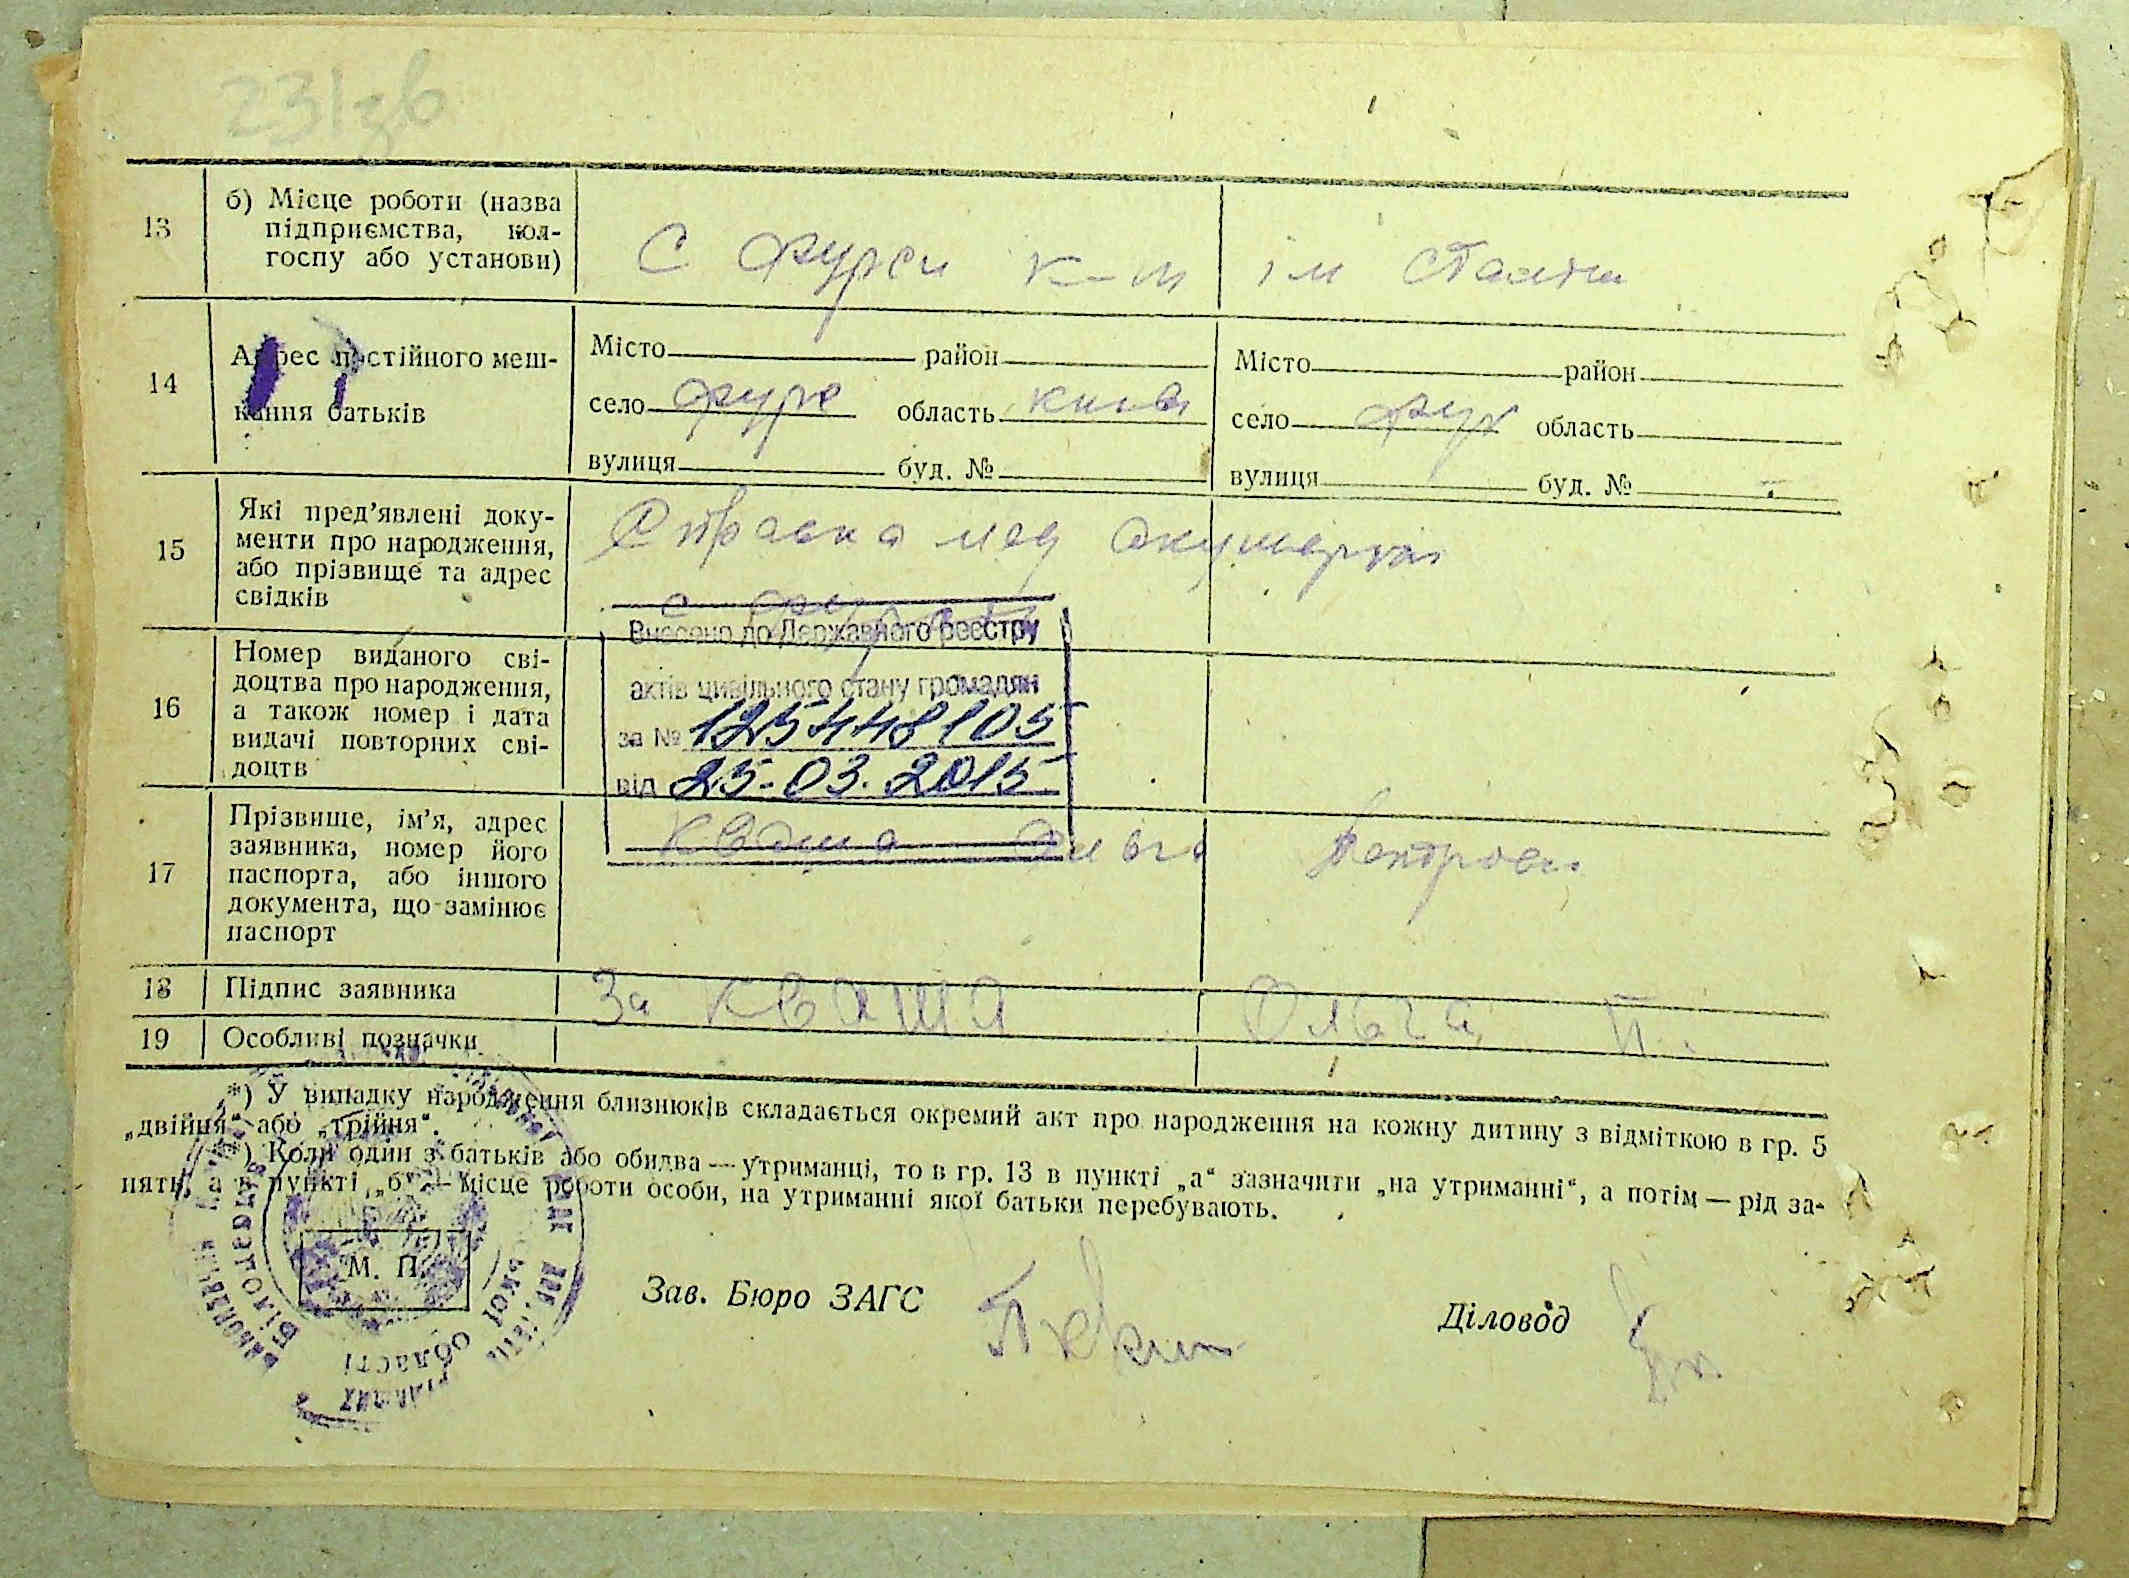 231зв
13
б) Місце роботи (назва
підприємства, кол-
госпу або установи)
С Фурси к-п ім Сталіна
14
Адрес постійного меш-
кання батьків
Місто район
село Фурс область Київ
вулиця буд. №
Місто район
село Фур область
вулиця буд. №
15
Які пред’явлені доку-
менти про народження,
або прізвище та адрес
свідків
Справка мед акушерки
16
Номер виданого сві-
доцтва про народження,
а також номер і дата
видачі повторних сві-
доцтв
Внесено до Державного реєстру
актів цивільного стану громадян
за № 125448105
від 25.03.2015
17
Прізвище, ім’я, адрес
заявника, номер його
паспорта, або іншого
документа, що замінює
паспорт
Кваша Ольга
18
Підпис заявника
За Кваша Ольга П.
19
Особливі позначки
*) У випадку народження близнюків складається окремий акт про народження на кожну дитину з відміткою в гр. 5
„двійня“ або „трійня“.
*) Коли один з батьків або обидва — утриманці, то в гр. 13 в пункті „а“ зазначити „на утриманні“, а потім — рід за-
няти, а в пункті „б“ — місце роботи особи, на утриманні якої батьки перебувають.
М. П.
області
Зав. Бюро ЗАГС
Діловод